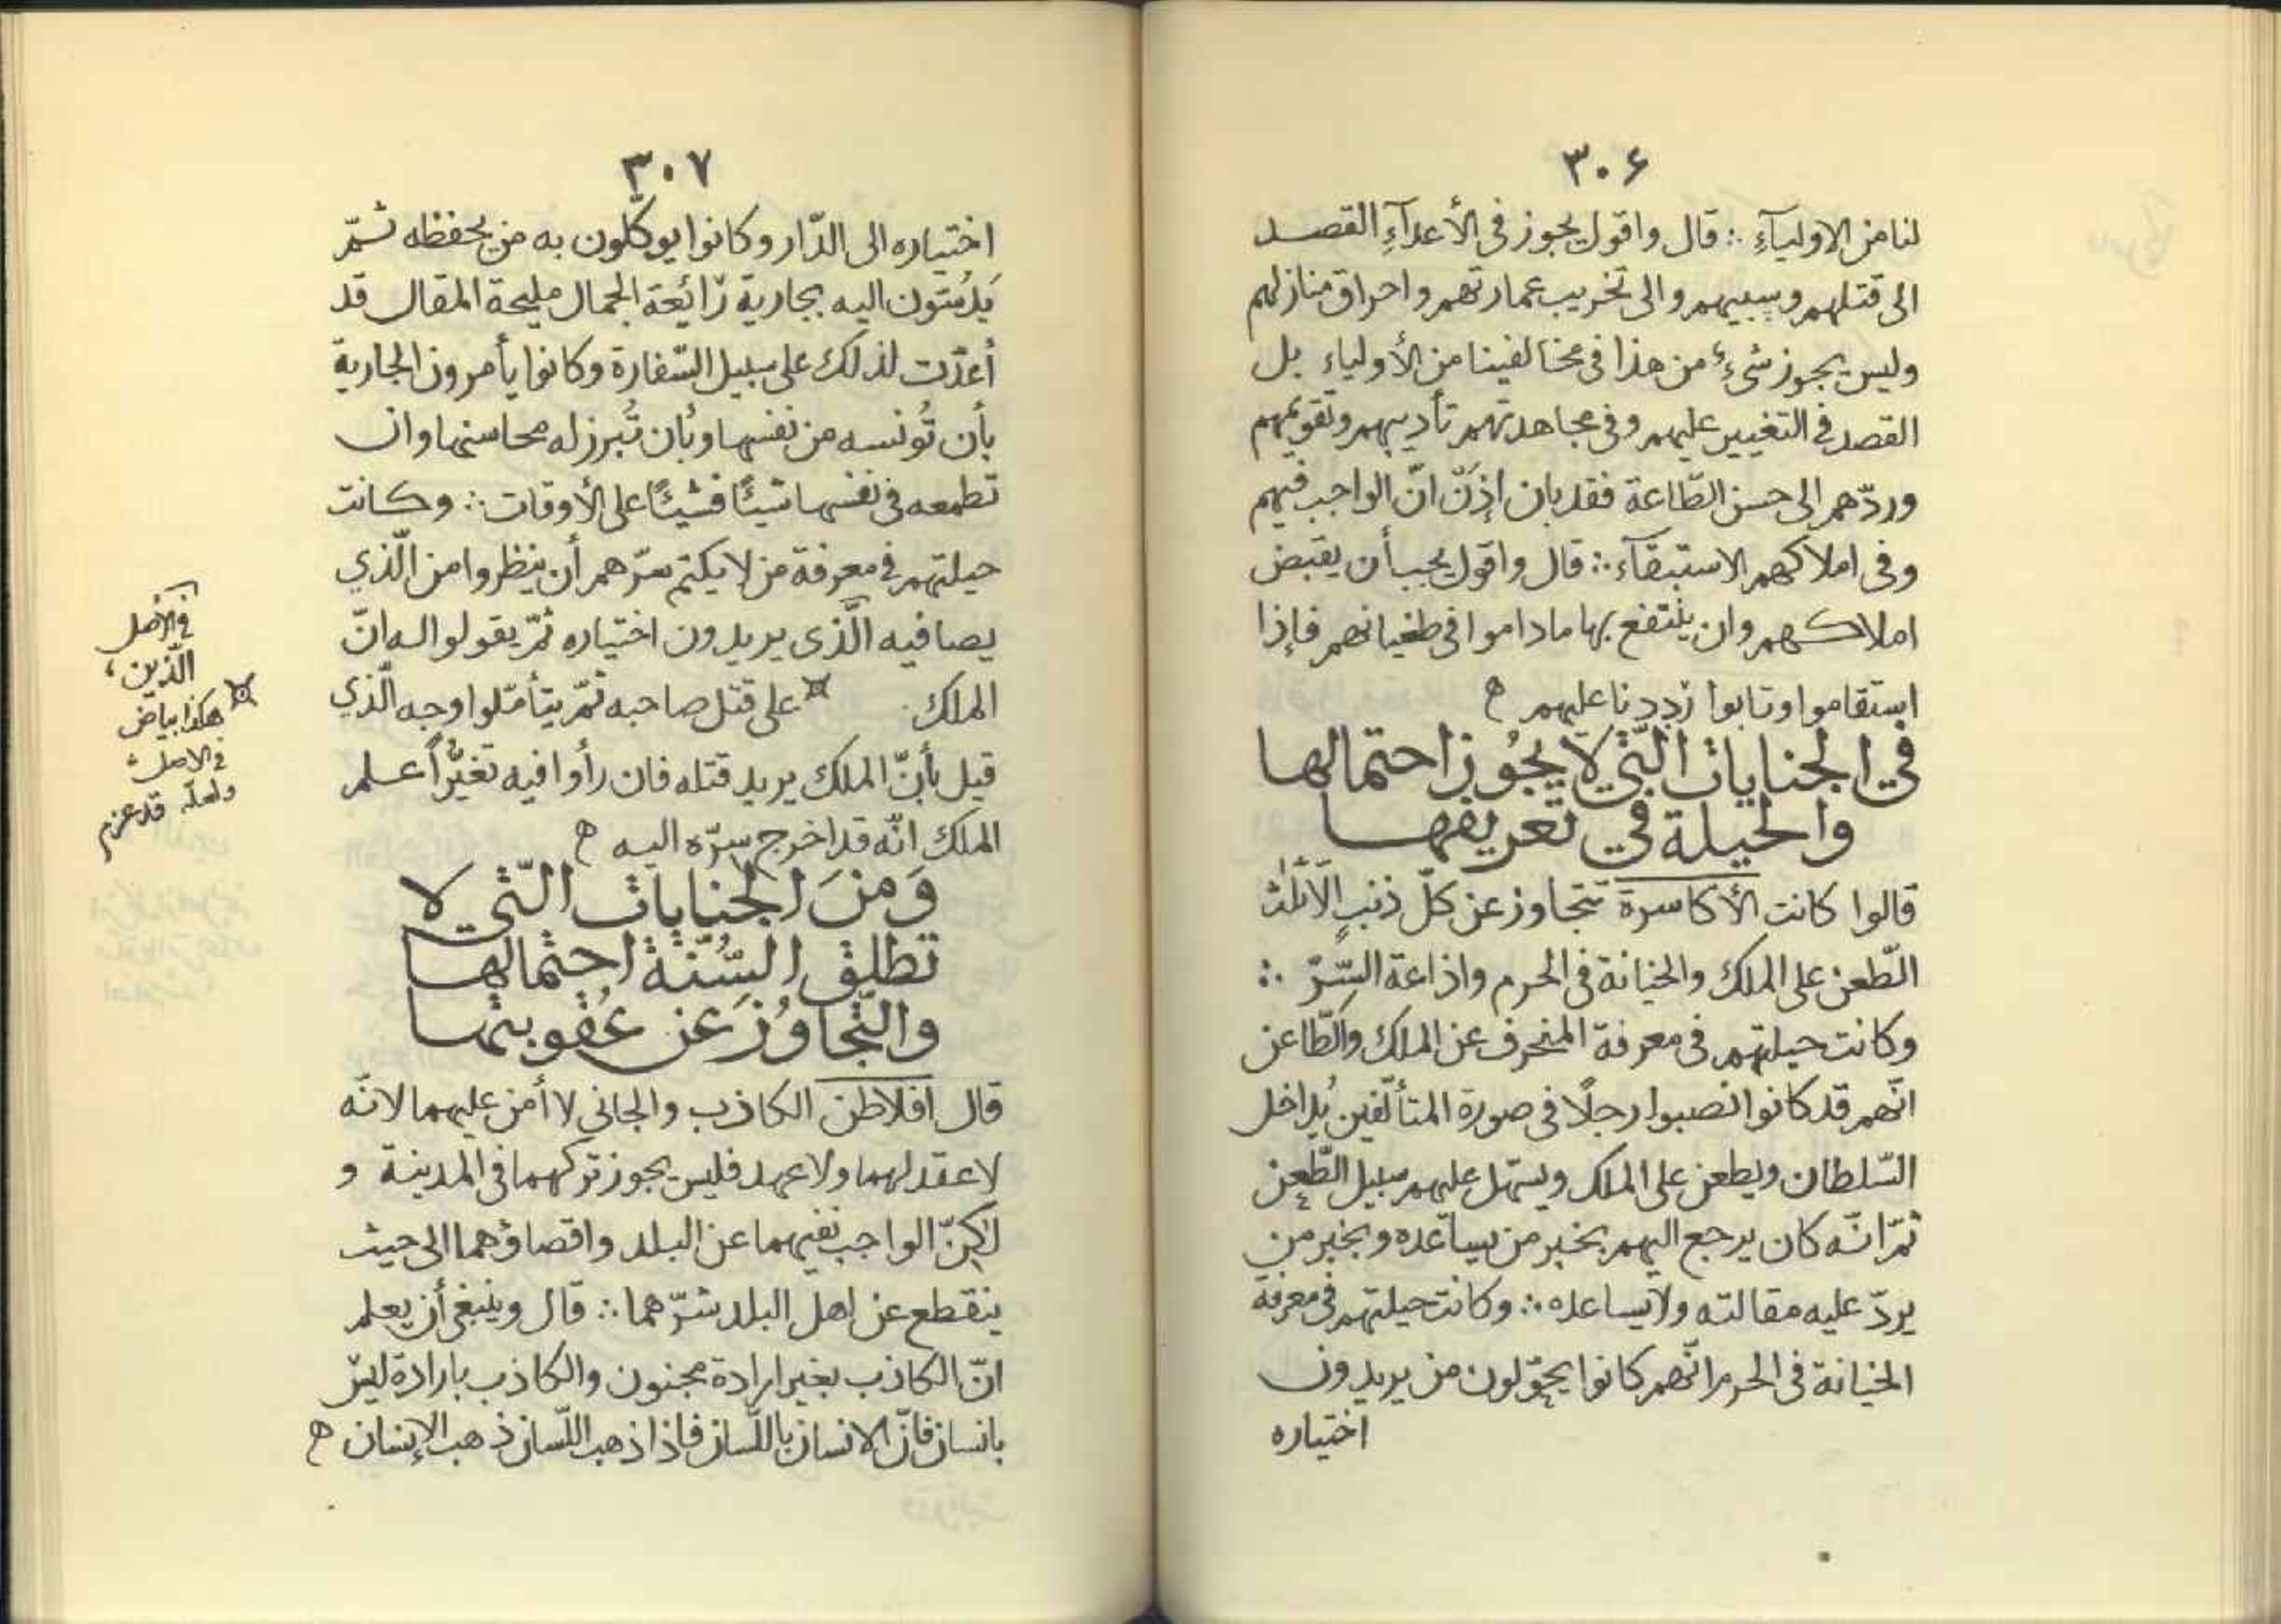 ٣٠۶
لنا من الاولياءِ ∴ قال واقول يجوز فى الأعدآءِ القصد
الى قتلهم وسبيهم والى تخريب عمارتهم واحراق منازلهم
وليس يجوز شىءٌ من هذا فى مخالفينا من الأولياء بل
القصد فى التغيير عليهم وفى مجاهدتهم تأديبهم وتقويمهم
وردّهم الى حسن الطّاعة فقد بان إذنْ انّ الواجب فيهم
وفى املاكهم الاستبقآء ∴ قال واقول يجب أن يقبض
املاكهم وان ينتفع بها ما داموا فى طغيانهم فإذا
استقاموا وتابوا رددنا عليهم ه
في الجنايات الّتي لا يجُوز احتمالها
والحيلة في تعريفها
قالوا كانت الأكاسرة تتجاوز عن كلّ ذنبٍ الّا ثلٰث
الطّعن على الملك والخيانة فى الحرم واذاعة السّرّ ∴
وكانت حيلتهم فى معرفة المنحرف عن الملك والطّاعن
انّهم قد كانوا نصبوا رجلًا فى صورة المتألّفين يُداخل
السّلطان ويطعن على الملك ويسهّل عليهم سبيل الطّعن
ثمّ انّه كان يرجع اليهم بخبر من يساعده وبخبر من
يردّ عليه مقالته ولا يساعده ∴ وكانت حيلتهم فى معرفة
الخيانة فى الحرم انّهم كانوا يحوّلون من يريدون
اختياره
٣٠٧
اختياره الى الدّار وكانوا يوكّلون به من يحفظه ثمّ
يَدُسّون اليه بجارية رائعة الجمال مليحة المقال قد
أعدّت لذلك على سبيل السّفارة وكانوا يأمرون الجارية
بأن تُونسه من نفسها وبأن تُبرز له محاسنها وان
تطمعه فى نفسها شيئًا فشيئًا على الأوقات ∴ وكانت
حيلتهم فى معرفة من لا يكتم سرّهم أن ينظروا من الّذي
يصافيه الّذى يريدون اختياره ثمّ يقولوا له انّ
الملك ¤ على قتل صاحبه ثمّ يتأمّلوا وجه الّذي
قيل بأنّ الملك يريد قتله فان رأوا فيه تغيُّراً علم
الملك انّه قد اخرج سرّه اليه ه
وَمنَ الجنايات الّتي لا
تطلق السُّنّة احتمالها
والتّجاوُزَ عن عُقوبتها
قال افلاطن الكاذب والجاني لا أمن عليهما لانّه
لا عقد لهما ولا عهد فليس يجوز تركهما فى المدينة و
لٰكنّ الواجب نفيهما عن البلد واقصاؤهما الى حيث
ينقطع عن اهل البلد شرّهما ∴ قال وينبغى أن يعلم
انّ الكاذب بغير ارادة مجنون والكاذب بارادة ليس
بانسان فانّ الانسان باللّسان فاذا ذهب اللّسان ذهب الإنسان ه
في الأصل
الّذين،
¤ هكذا بياض
في الاصل
ولعلّه قد عزم